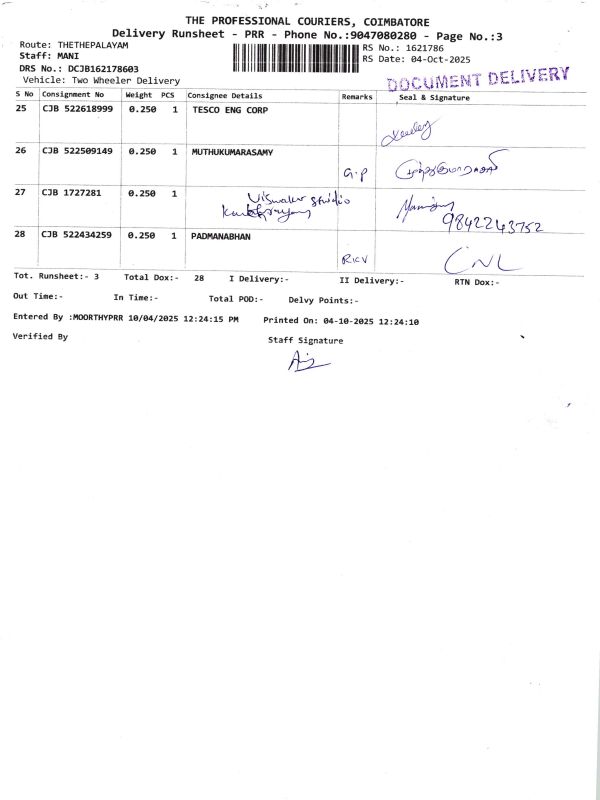 THE PROFESSIONAL COURIERS, COIMBATORE
Delivery Runsheet - PRR - Phone No.:9047080280 - Page No.:3
Route: THETHEPALAYAM
RS No.: 1621786
Staff: MANI
RS Date: 04-Oct-2025
DRS No.: DCJB162178603
Vehicle: Two Wheeler Delivery
DOCUMENT DELIVERY
S No Consignment No Weight PCS Consignee Details Remarks Seal & Signature
25 CJB 522618999 0.250 1 TESCO ENG CORP
26 CJB 522509149 0.250 1 MUTHUKUMARASAMY
G.P முத்துகுமாரசாமி
27 CJB 1727281 0.250 1 Studio
9842243752
28 CJB 522434259 0.250 1 PADMANABHAN
CNL
Tot. Runsheet:- 3 Total Dox:- 28 I Delivery:- II Delivery:- RTN Dox:-
Out Time:- In Time:- Total POD:- Delvy Points:-
Entered By :MOORTHYPRR 10/04/2025 12:24:15 PM Printed On: 04-10-2025 12:24:10
Verified By Staff Signature